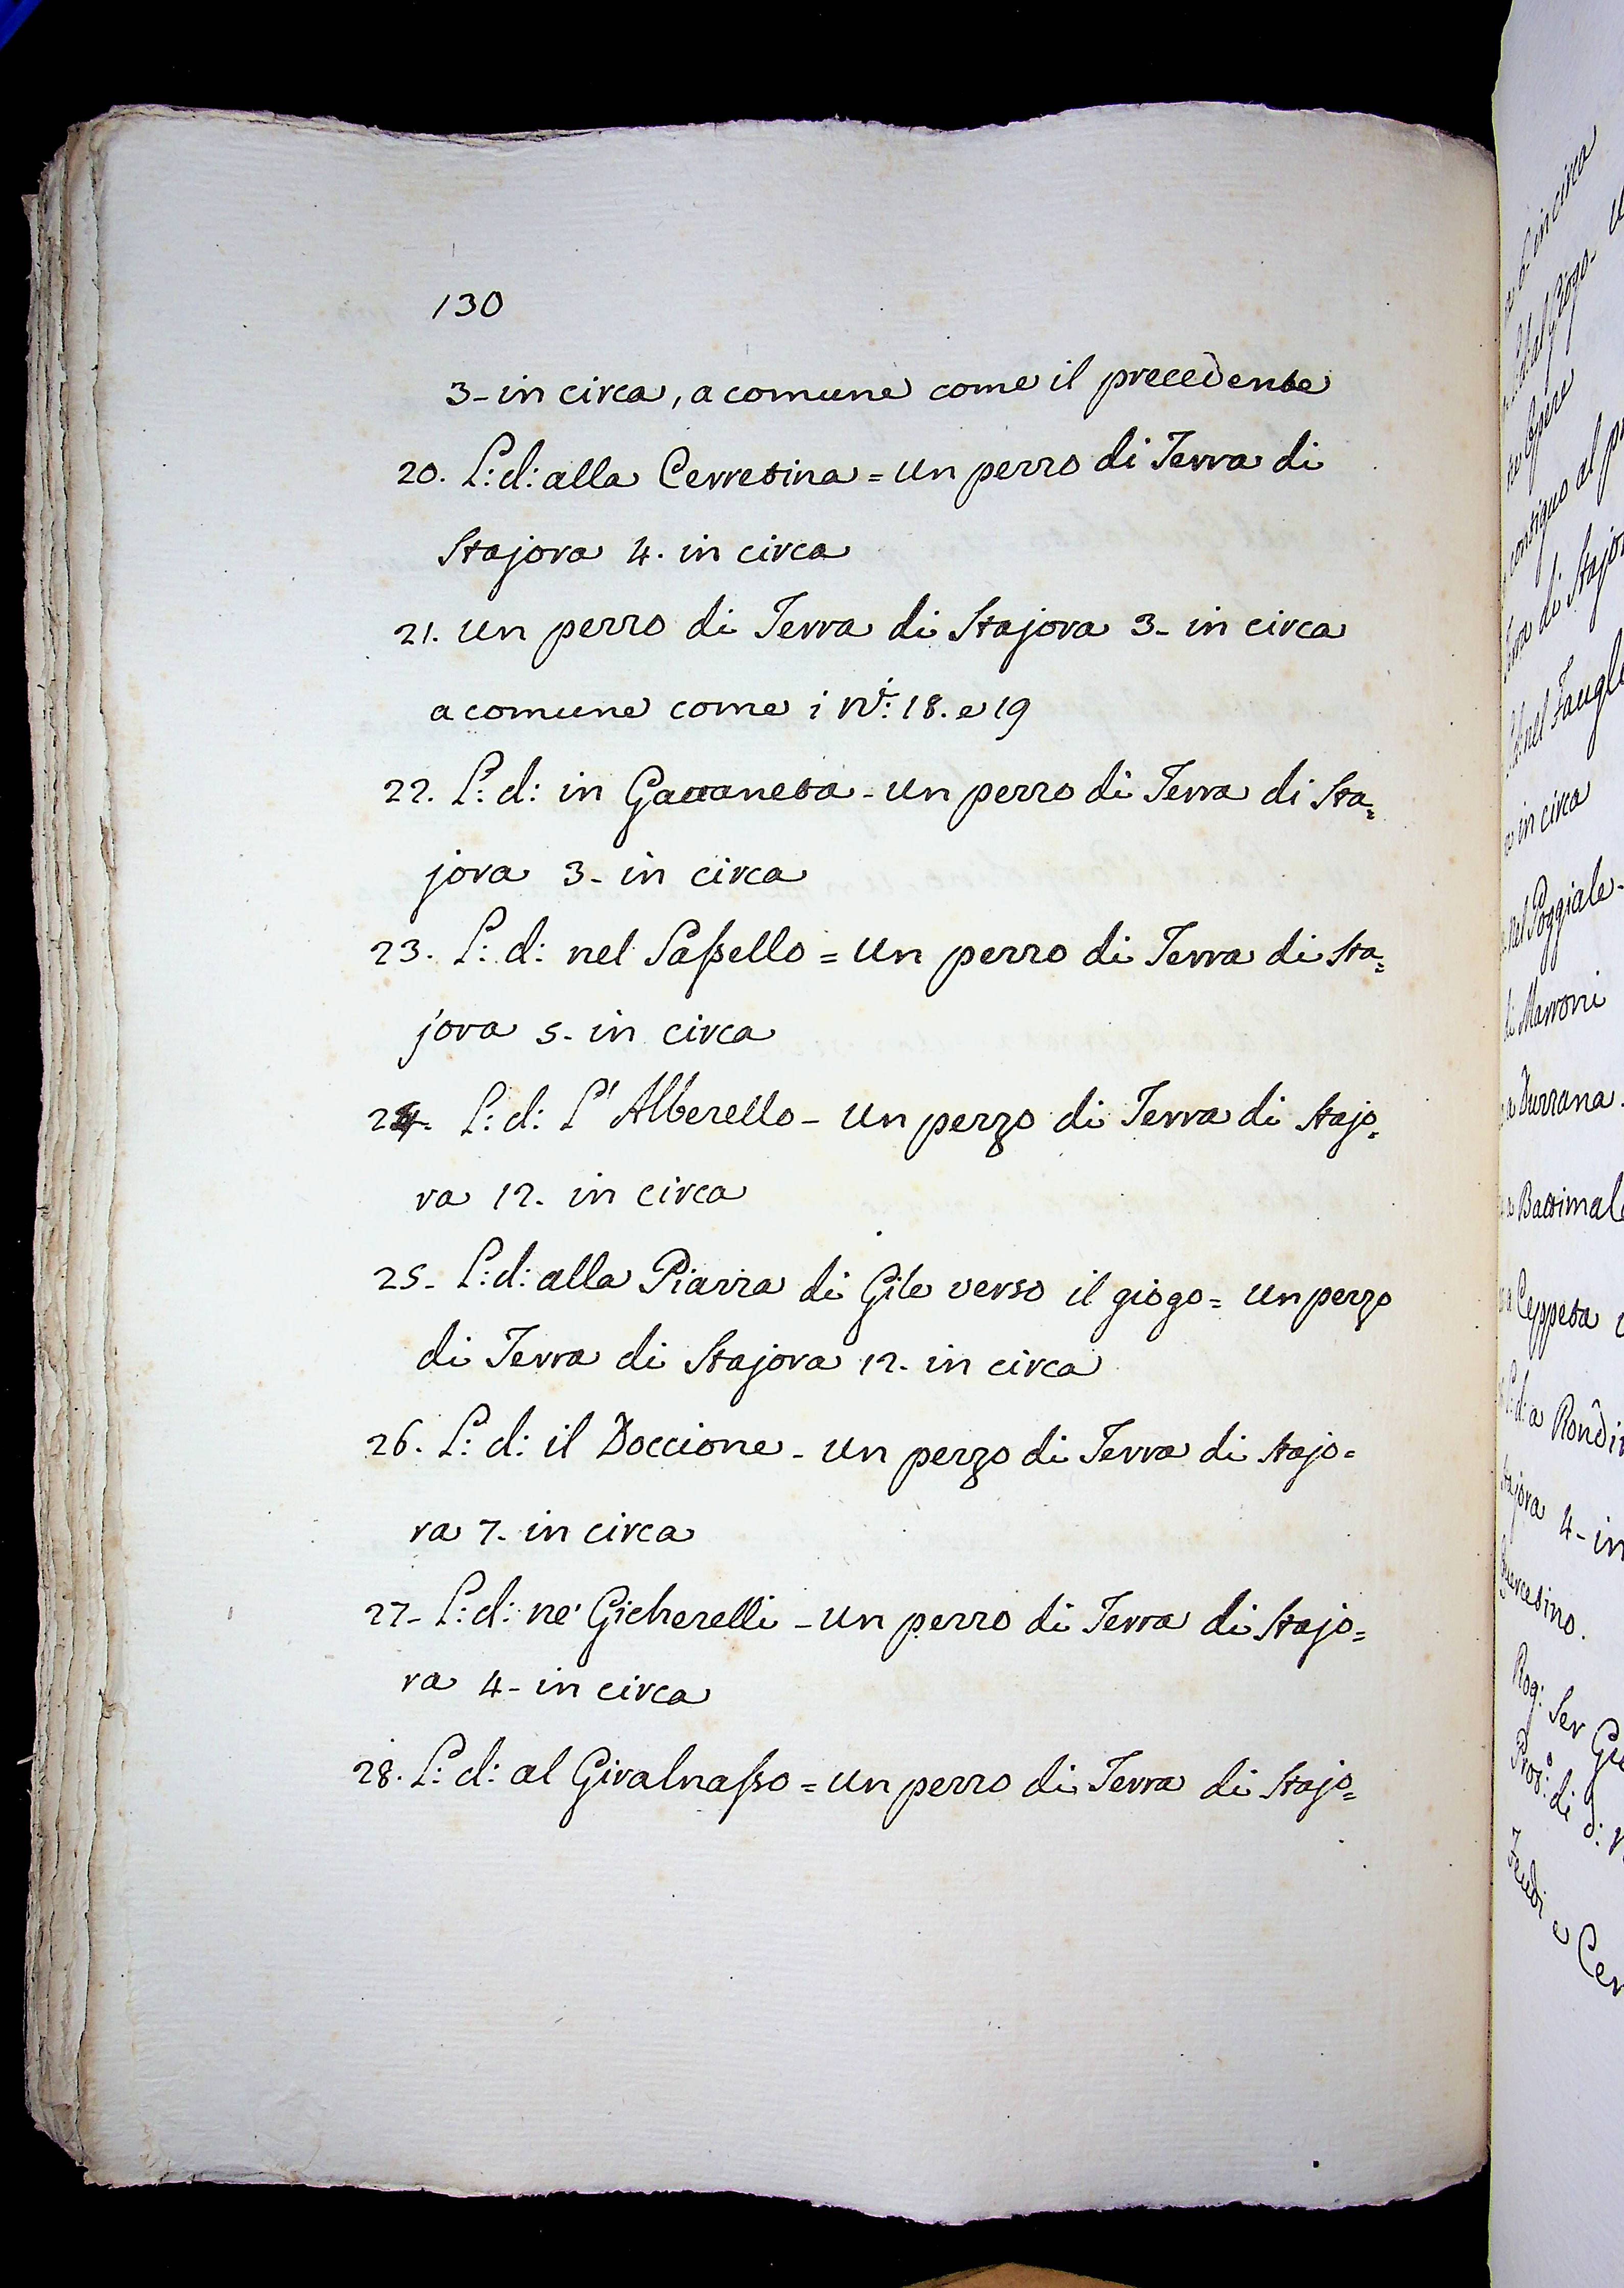 130
3- in circa, a comune come il precedente
20. L: d: alla Cerretina = un pezzo di Terra di
Stajora 4. in circa
21. un pezzo di Terra di Stajora 3- in circa
a comune come i Ni: 18. e 19
22. L: d: in Gattaneta - un pezzo di Terra di Sta=
jora 3- in circa
23. L: d: nel Sassello = un pezzo di Terra di Sta=
jora 5- in circa
24. L: d: L' Alberello - un pezzo di Terra di Stajo=
ra 12. in circa
25- L: d: alla Piazza di Gile verso il giogo = un pezzo
di Terra di Stajora 12. in circa
26. L: d: il Doccione - un pezzo di Terra di Stajo=
ra 7- in circa
27- L: d: ne' Gicherelli - un pezzo di Terra di Stajo=
ra 4- in circa
28. L: d: al Giralnasso = un pezzo di Terra di Stajo=
in circa
Opere
contiguo al
di Stajo
nel
in circa
nel Poggiale-
di Marroni
Burrana.
Ceppeta
L: d: a
4- in
Rog: Ser
di
e